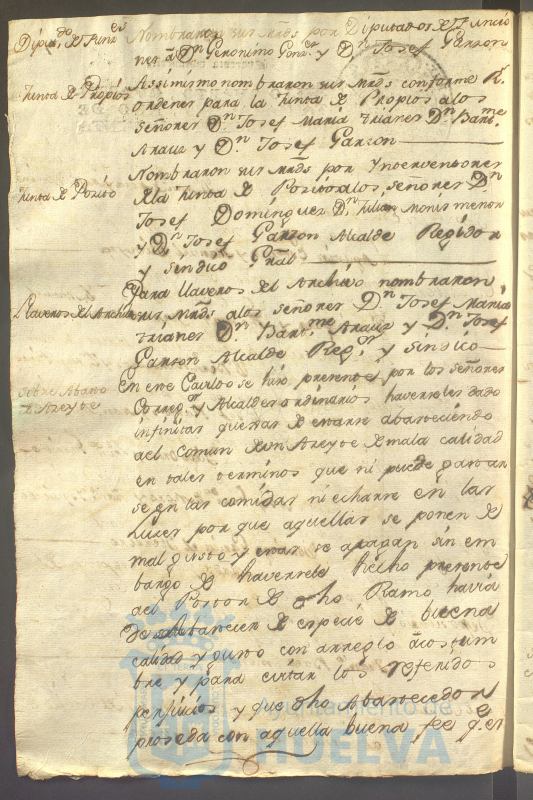 Diput.os de Func.es
Nombraron sus mrds por Diputados de Funcio
nes a Dn Geronimo Gonz.ez y Dn Josef Garzon
Junta de Propios
Assimismo nombraron sus mrds conforme R.s
ordenes para la Junta de Propios a los
señores Dn Josef Maria Trianes Dn Bart.me
Arauz y Dn Josef Garzon
Junta de Posito
Nombraron sus mrds por Ynterventores
de la Junta de Positos a los señores Dn
Josef Dominguez Dn Julian Monis menor
y Dn Josef Garzon Alcalde Regidor
y sindico Gral
Llaveros del Archibo
Para llaveros del Archivo nombraron
sus mrds a los señores Dn Josef Maria
Trianes Dn Bart.me Arauz y Dn Josef
Garzon Alcalde Reg.or y sindico
sobre Abasto
de Azeyte
En este Cavildo se hizo presente por los señores
Correg.or y Alcaldes ordinarios haverseles dado
infinitas quexas de estarse abasteciendo
al comun de un Azeyte de mala calidad
en tales terminos que ni puede gastar
se en las comidas ni echarse en las
luzes por que aquellas se ponen de
mal gusto y estas se apagan sin em
bargo de haversele hecho presente
al Postor de dho Ramo havia
de Abastecer de especie de buena
calidad y gusto con arreglo a costum
bre y para evitar los referidos
perjuicios y que dho Abastecedor
proseda con aquella buena fee q.e es
Ayuntamiento de
HUELVA